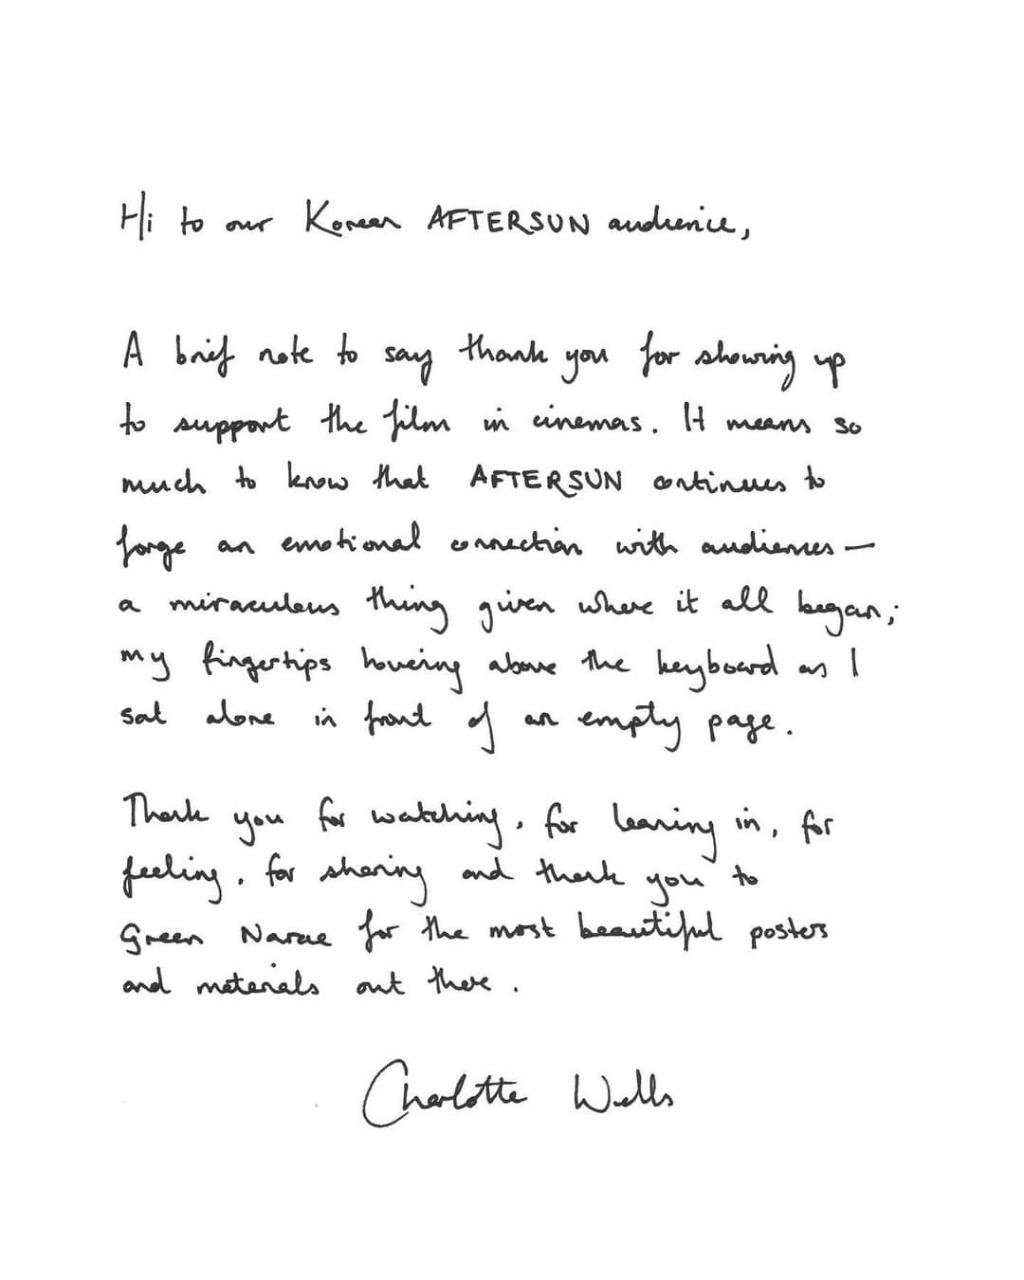 Hi to our Korean AFTERSUN audience,
A brief note to say thank you for showing up
to support the film in cinemas. It means so
much to know that AFTERSUN continues to
forge an emotional connection with audiences —
a miraculous thing given where it all began;
my fingertips hovering above the keyboard as I
sat alone in front of an empty page.
Thank you for watching, for leaning in, for
feeling, for sharing and thank you to
Green Narae for the most beautiful posters
and materials out there.
Charlotte Wells